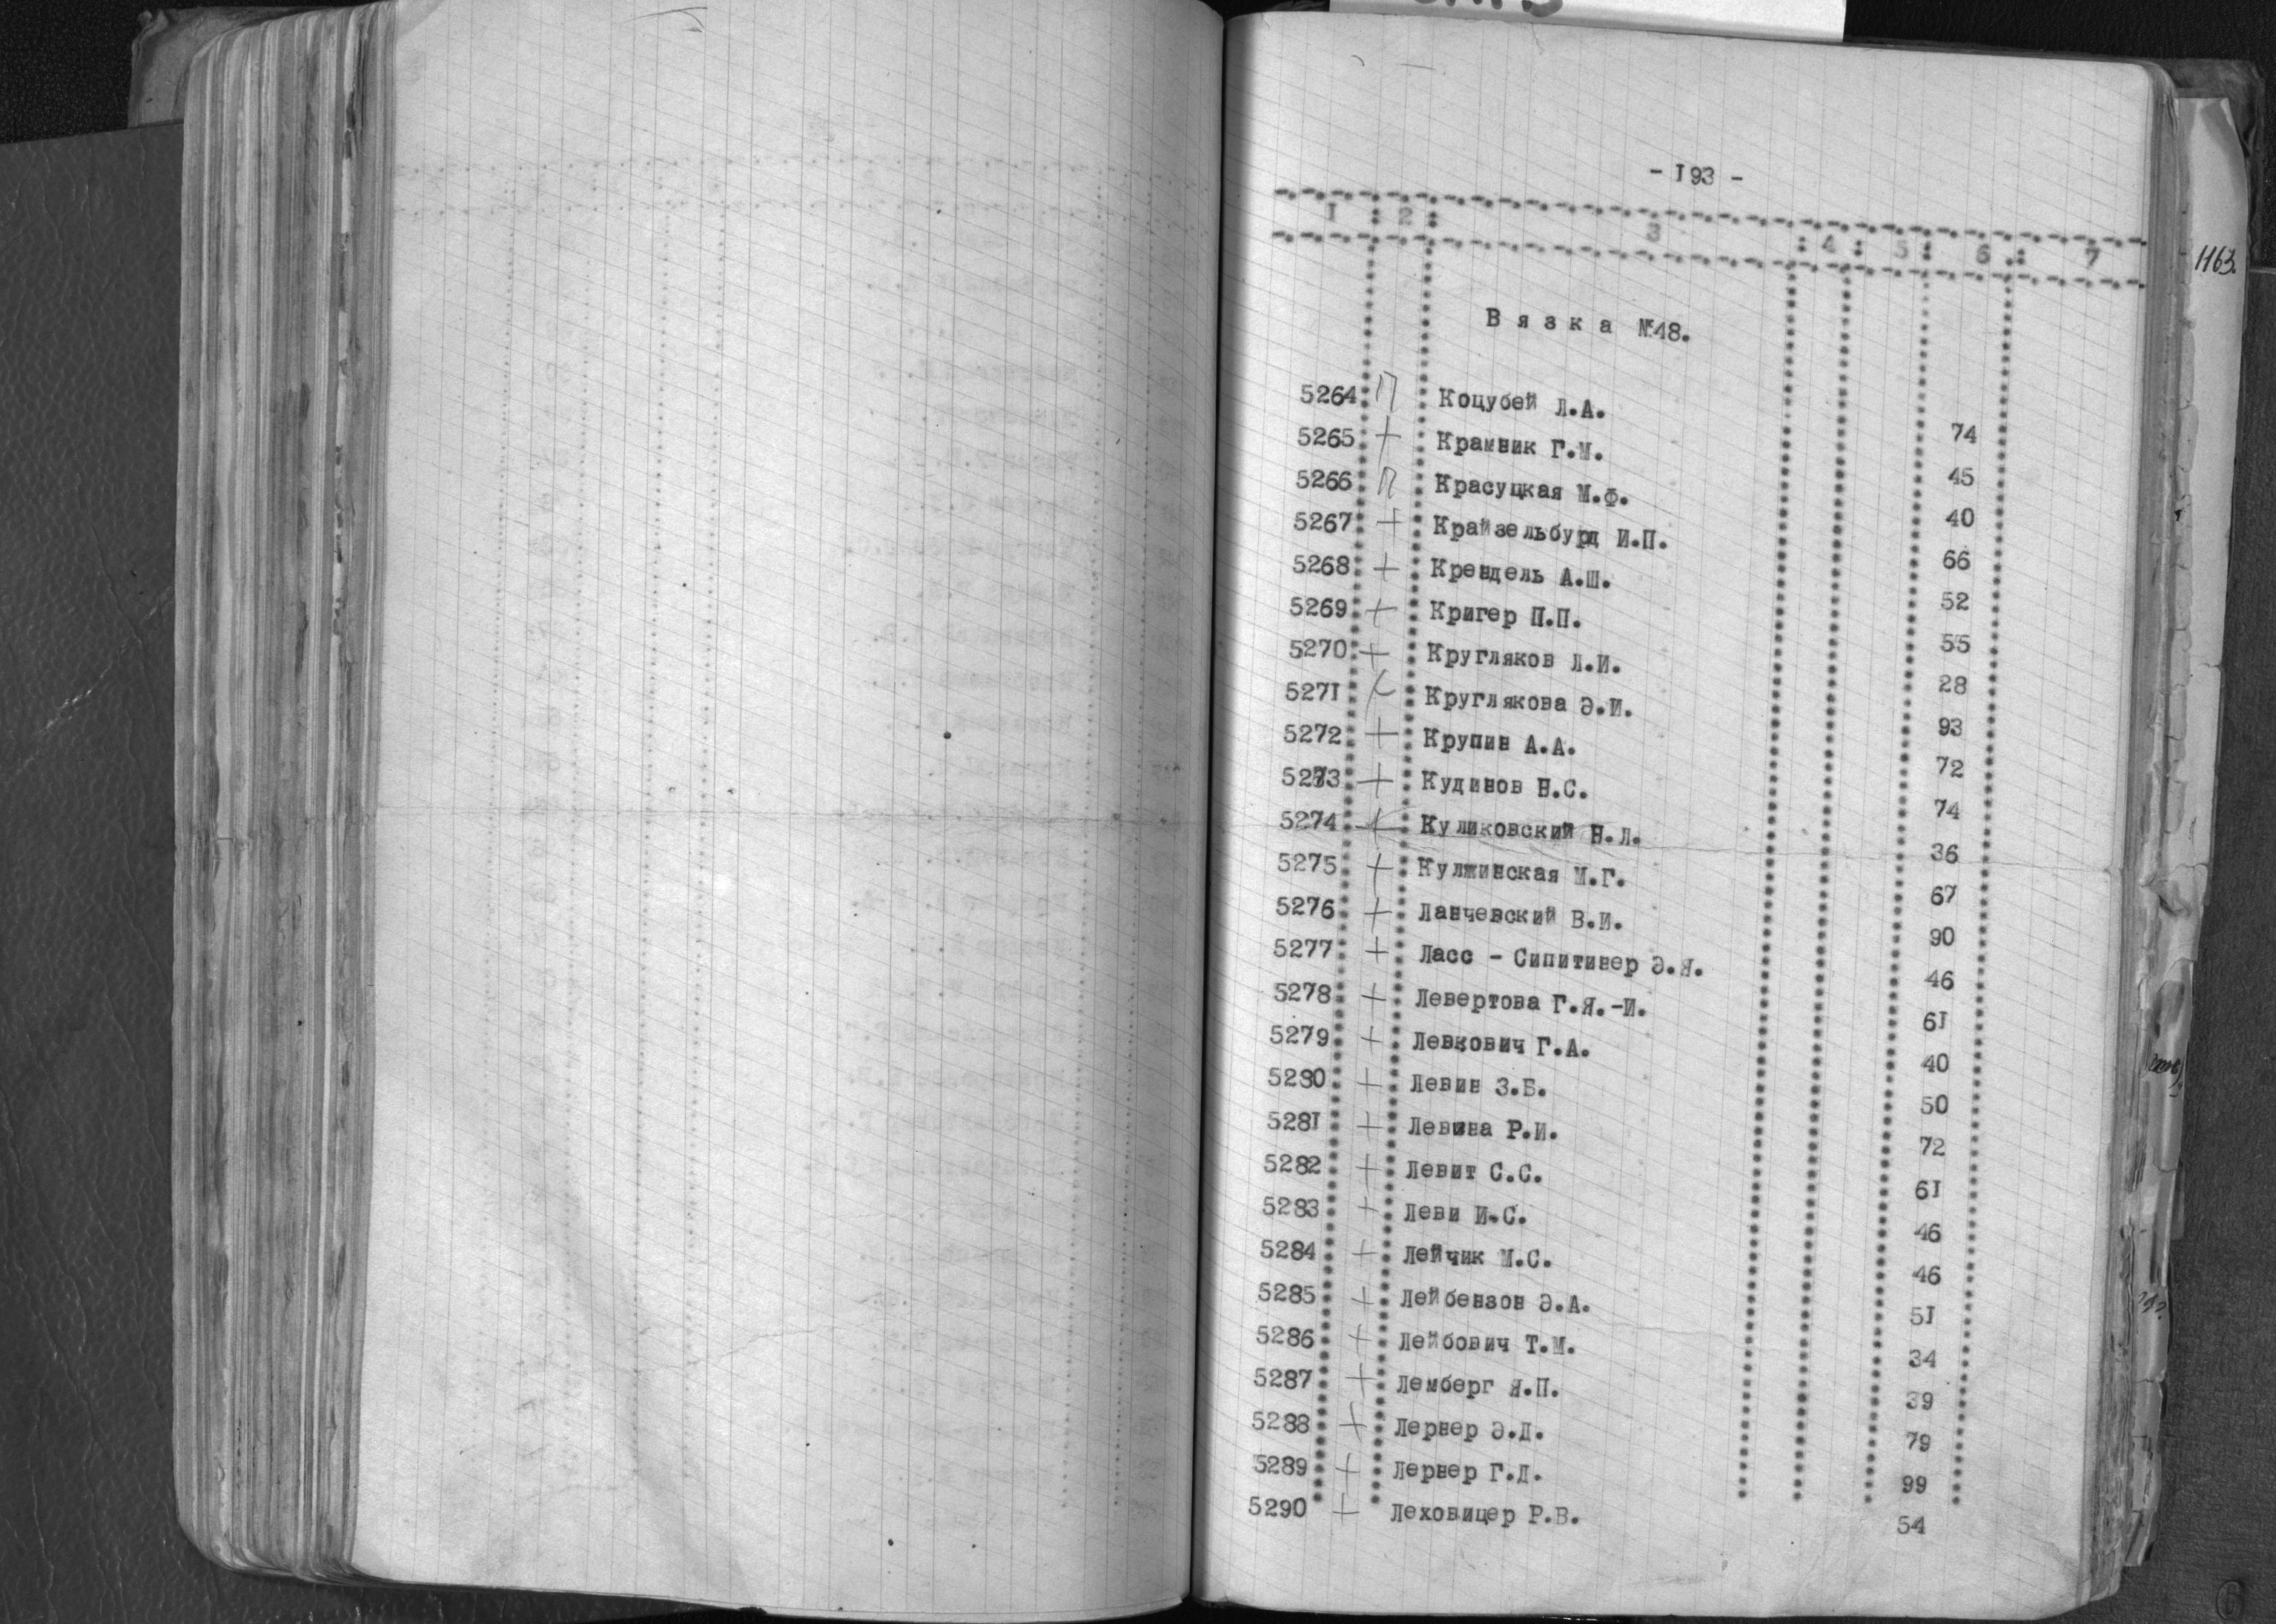 - I93 -
I : 2 : 3 : 4 : 5 : 6 : 7
1163.
Вязка №48.
5264 П Коцубей Л.А. 74
5265 + Крамник Г.М. 45
5266 П Красуцкая М.Ф. 40
5267 + Крайзельбурд И.П. 66
5268 + Крендель А.Ш. 52
5269 + Кригер П.П. 55
5270 + Кругляков Л.И. 28
527I Круглякова Э.И. 93
5272 + Крупин А.А. 72
5273 + Кудинов Н.С. 74
5274 + Куликовский Н.Л. 36
5275 + Кулжинская М.Г. 67
5276 + Ланчевский В.И. 90
5277 + Ласс - Сипитинер Э.Я. 46
5278 + Левертова Г.Я.-И. 6I
5279 + Левкович Г.А. 40
5280 + Левин З.Б. 50
528I + Левина Р.И. 72
5282 + Левит С.С. 6I
5283 + Леви И.С. 46
5284 + Лейчик М.С. 46
5285 + Лейбензон Э.А. 5I
5286 + Лейбович Т.М. 34
5287 + Лемберг Я.П. 39
5288 + Лернер Э.Д. 79
5289 + Лернер Г.Д. 99
5290 + Леховицер Р.В. 54